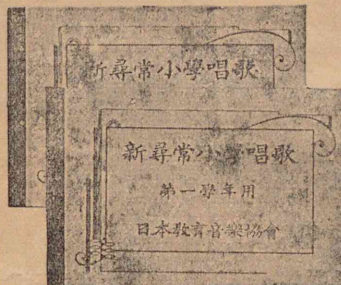 新尋常小學唱歌
新尋常小學唱歌
第一學年用
日本敎育音樂協會